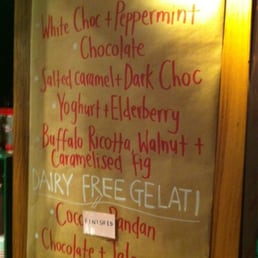 White Choc + Peppermint
Chocolate
Salted caramel + Dark Choc
Yoghurt + Elderberry
Buffalo Ricotta, Walnut +
Caramelised fig
DAIRY FREE GELATI
FINISHED
Pandan
Chocolate +